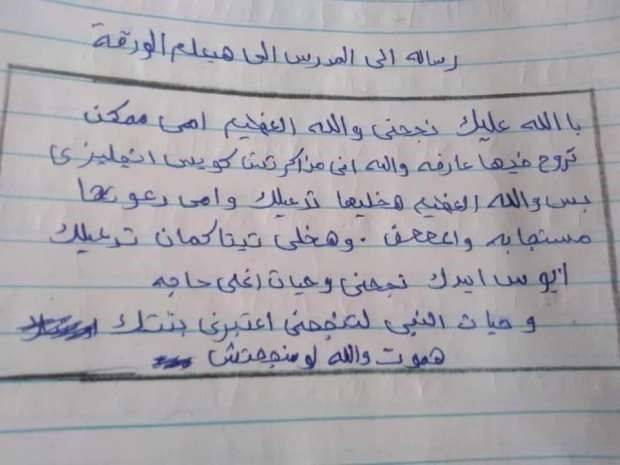 رساله الى المدرس الى هيعلم الورقة
بالله عليك نجحنى والله العظيم امى ممكن
تروح فيها عارفه والله انى مذاكرتش كويس انجليزى
بس والله العظيم هخليها تدعيلك وامى دعوتها
مستجابه وااااا. وهخلى تيتا كمان تدعيلك
ابوس ايدك نجحنى وحيات اغلى حاجه
وحيات النبى لتنجحنى اعتبرنى بنتك
هموت والله لو منجحتش